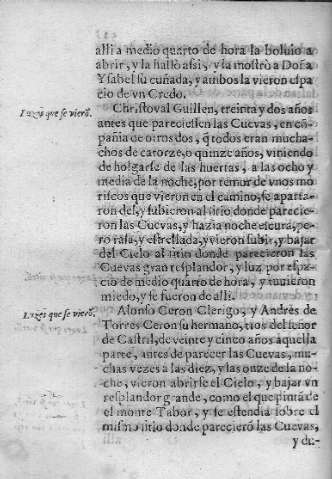 alli a medio quarto de hora la boluio a
abrir, y la hallò assi, y la mostrò a Doña
Ysabel su cuñada, y ambos la vieron espa
cio de vn Credo.
Luzes que se vierõ.
Christoval Guillen, treinta y dos años
antes que pareciessen las Cuevas, en cõ-
pañia de otros dos, q̃ todos eran mucha-
chos de catorze, o quinze años, viniendo
de holgarse de las huertas, a las ocho y
media de la noche, por temor de vnos mo
riscos que vieron en el camino, se aparta-
ron del, y subieron al sitio donde parecie-
ron las Cuevas, y hazia noche escura, pe-
ro rasa, y estrellada, y vieron subir, y bajar
del Cielo al sitio donde parecieron las
Cuevas gran resplandor, y luz por espa-
cio de medio quarto de hora, y tuuieron
miedo, y se fueron de alli.
Luzes que se vierõ.
Alonso Ceron Clerigo, y Andrès de
Torres Ceron su hermano, tios del señor
de Castril, de veinte y cinco años à aquella
parte, antes de parecer las Cuevas, mu-
chas vezes a las diez, y las onze de la no-
che, vieron abrirse el Cielo, y bajar vn
resplandor grande, como el que pintã de
el monte Tabor, y se estendia sobre el
mismo sitio donde parecierõ las Cuevas,
y du-